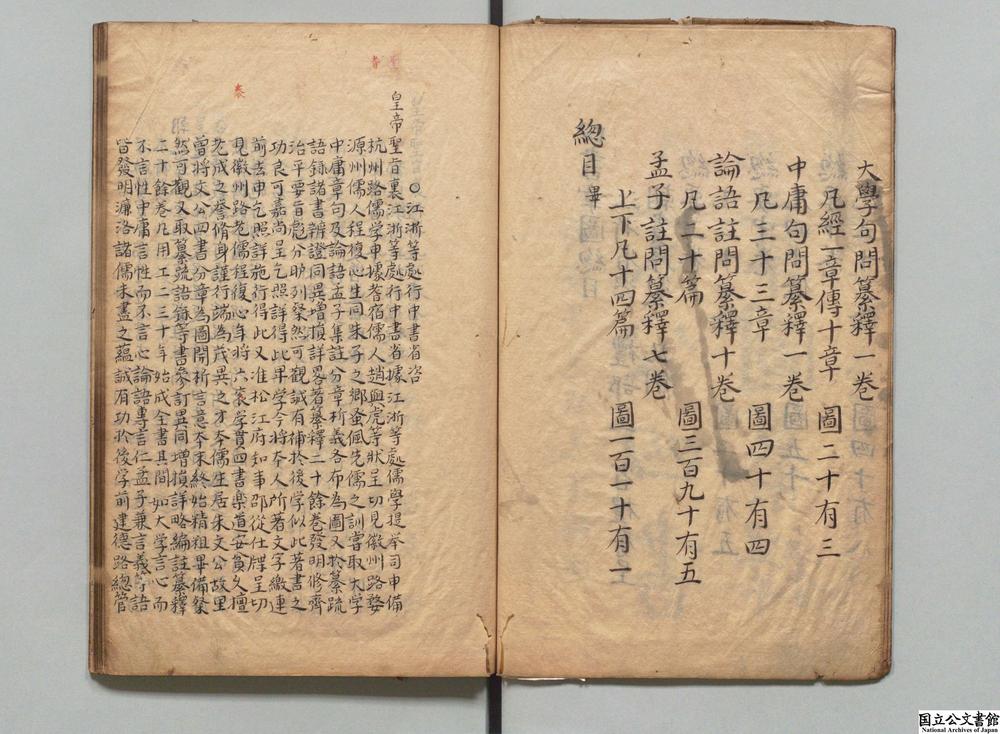 大學句問纂釋一卷
凡經一章傳十章 圖二十有三
中庸句問纂釋一卷
凡三十三章 圖四十有四
論語註問纂釋十卷
凡二十篇 圖三百九十有五
孟子註問纂釋七卷
上下凡十四篇 圖一百一十有一
總目畢
○江浙等處行中書省咨
皇帝聖旨裏江浙等處行中書省據江浙等處儒學提举司申備
杭州路儒學申據耆宿儒人趙孟虎等狀呈切見徽州路婺
源州儒人程復心生同朱子之鄉蚤佩先儒之訓嘗取大学
中庸章句及論語孟子集註分章析義各布為圖又於纂疏
語錄諸書辨證同異增損詳畧著纂釋二十餘卷發明修齊
治平要旨彪分昈列粲然可觀誠有補於後学似此著書之
功良可嘉尚呈乞照詳得此申学今將本人所著文字繳連
前去申乞照詳施行得此又准松江府知事邵從仕牒呈切
見徽州路老儒程復心年將六袠学貫四書樂道安貧久擅
老成之譽脩身謹行端為茂異之才本儒生居朱文公故里
曾將文公四書分章為圖開析言意本末終始精粗畢備粲
然可觀又取纂疏語錄等書參訂異同增損詳略編註纂釋
二十餘卷凡用工二三十年始成全書其間如大学言心而
不言性中庸言性而不言心論語專言仁孟子兼言義等語
皆發明濂洛諸儒未盡之蘊誠有功於後学前建德路總管
聖
者
袠
国立公文書館
National Archives of Japan